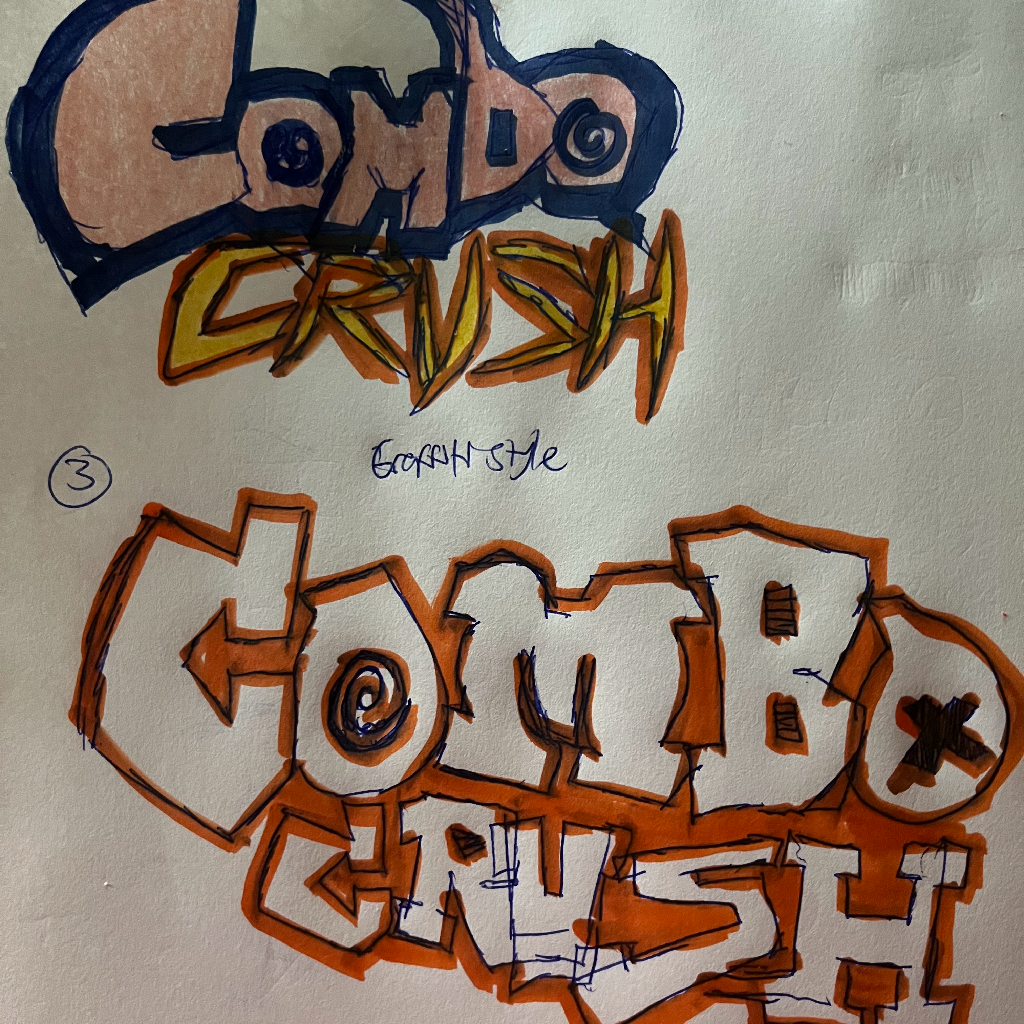 COMBO
CRUSH
Graffiti style
3
COMBO
CRUSH